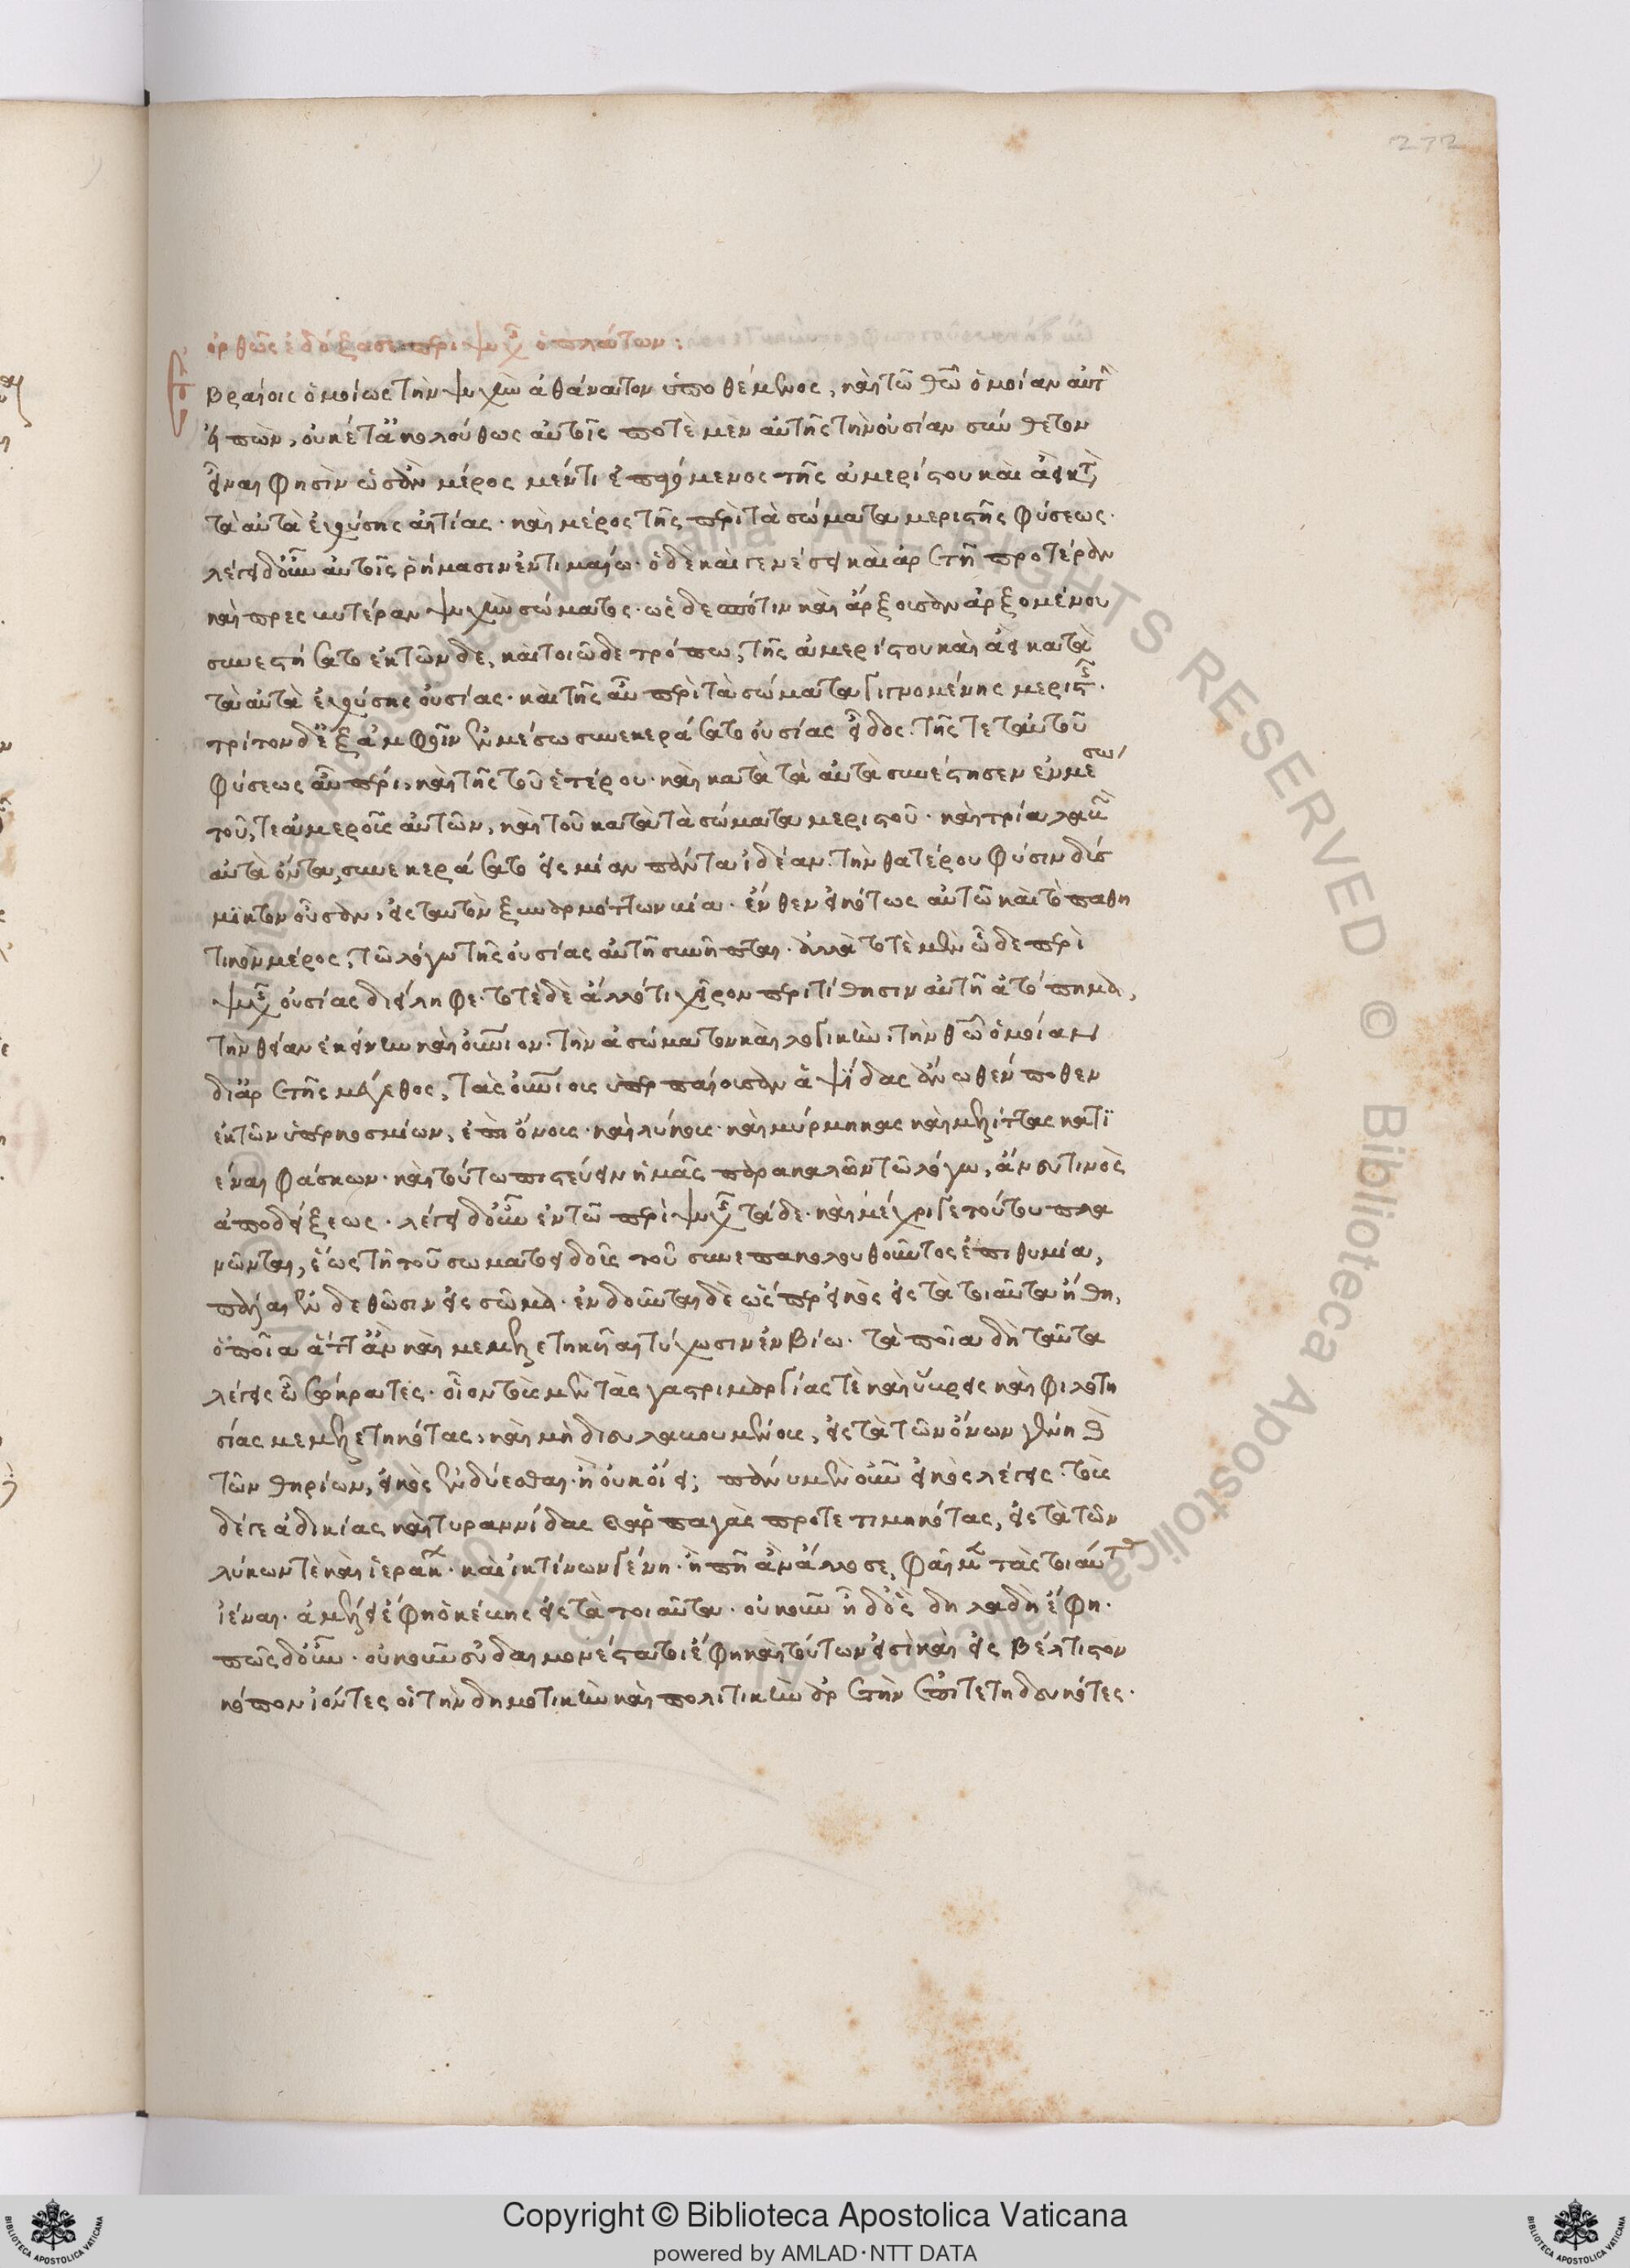 272
ὀρθῶς ἐδόξασε περὶ ψυχῆς ὁ πλάτων:
Ἑβραίοις ὁμοίως τὴν ψυχὴν ἀθάνατον ὑποθέμενος, καὶ τῶ θεῶ ὁμοίαν αὐτὴν
εἰπὼν, οὐκέτ' ἀκολούθως αὐτοῖς ποτὲ μὲν αὐτῆς τὴν οὐσίαν σύνθετον
εἶναι φησὶν ὡσὰν μέρος μέν τι ἐπαγόμενος τῆς ἀμερίστου καὶ ἀεὶ κατὰ
τὰ αὐτὰ ἐχούσης αἰτίας· καὶ μέρος τῆς περὶ τὰ σώματα μεριστῆς φύσεως.
λέγει δ' οὖν αὐτοῖς ῥήμασιν ἐν τιμαίω· ὁ δὲ καὶ γενέσει καὶ ἀρετῆ προτέραν
καὶ πρεσβυτέραν ψυχὴν σώματος· ὡς δεσπότιν καὶ ἄρξουσαν ἀρξομένου
συνεστήσατο ἐκ τῶνδε, καὶ τοιῶδε τρόπω, τῆς ἀμερίστου καὶ ἀεὶ κατὰ
τὰ αὐτὰ ἐχούσης οὐσίας· καὶ τῆς αὖ περὶ τὰ σώματα γιγνομένης μεριστῆς.
τρίτον δ' ἐξ ἀμφοῖν ἐν μέσω συνεκεράσατο οὐσίας εἶδος. τῆς τε ταυτοῦ
φύσεως αὖ πέρι, καὶ τῆς τοῦ ἑτέρου· καὶ κατὰ τὰ αὐτὰ συνέστησεν ἐν μέσω
τοῦ, τε ἀμεροῦς αὐτῶν, καὶ τοῦ κατὰ τὰ σώματα μεριστοῦ· καὶ τρία λαβὼν
αὐτὰ ὄντα, συνεκεράσατο εἰς μίαν πάντα ἰδέαν. τὴν θατέρου φύσιν δύσ
μϊκτον οὖσαν, εἰς ταυτὸν ξυναρμόττων βία· ἔνθεν εἰκότως αὐτῶ καὶ τὸ παθη
τικὸν μέρος, τῶ λόγω τῆς οὐσίας αὐτῆ συνῆπται· ἀλλὰ τότε μὲν ὧδε περὶ
ψυχῆς οὐσίας διείληφε· τότε δὲ ἄλλό τι χεῖρον περιτίθησιν αὐτῆ ἀτόπημα,
τὴν θείαν ἐκείνην καὶ οὐράνιον· τὴν ἀσώματον καὶ λογικὴν· τὴν θεῶ ὁμοίαν
δι' ἀρετῆς μέγεθος, τὰς οὐρανίους ὑπερπαίουσαν ἀψῖδας ἄνωθέν ποθεν
ἐκ τῶν ὑπερκοσμίων, ἐπὶ ὄνους· καὶ λύκους· καὶ μύρμηκας καὶ μελίττας κατϊ
έναι φάσκων· καὶ τούτω πιστεύειν ἡμᾶς παρακαλῶν τῶ λόγω, ἄνευ τινὸς
ἀποδείξεως· λέγει δ' οὖν ἐν τῶ περὶ ψυχῆς τάδε· καὶ μέχρι γε τούτου πλα
νῶνται, ἕως τῆ τοῦ σωματοειδοῦς τοῦ συνεπακολουθοῦντος ἐπιθυμία,
πάλαι ἐνδεθῶσιν εἰς σῶμα· ἐνδοῦνται δὲ ὥσπερ εἰκὸς εἰς τὰ τοιαῦτα ἤθη,
ὁποῖα ἅττ' ἂν καὶ μεμελετηκυῖαι τύχωσιν ἐν βίω· τὰ ποῖα δὴ ταῦτα
λέγεις ὦ σώκρατες· οἷον τοὺς μὲν τὰς γαστριμαργίας τὲ καὶ ὕβρεις καὶ φιλοτη
σίας μεμελετηκότας, καὶ μὴ διευλαβουμένους, εἰς τὰ τῶν ὄνων γένη καὶ
τῶν θηρίων, εἰκὸς ἐνδύεσθαι· ἢ οὐκ οἴει; πάνυ μὲν οὖν εἰκὸς λέγεις· τοὺς
δέ γε ἀδικίας καὶ τυραννίδας καὶ ἁρπαγὰς προτετιμηκότας, εἰς τὰ τῶν
λύκων τὲ καὶ ἱεράκων· καὶ ἰκτίνων γένη· ἢ πῆ ἂν ἄλλοσε, φαῖμεν τὰς τοιαύτας
ἰέναι· ἀμέλει ἔφη ὁ κέβης εἰς τὰ τοιαῦτα· οὐκοῦν ἦ δ' ὃς δῆλα δὴ ἔφη·
πῶς δ' οὖν· οὐκοῦν εὐδαιμονέστατοι ἔφη καὶ τούτων εἰσὶ καὶ εἰς βέλτιστον
κόπον ἰόντες οἱ τὴν δημοτικὴν καὶ πολιτικὴν ἀρετὴν ἐπιτετηδευκότες.
Copyright © Biblioteca Apostolica Vaticana
powered by AMLAD·NTT DATA